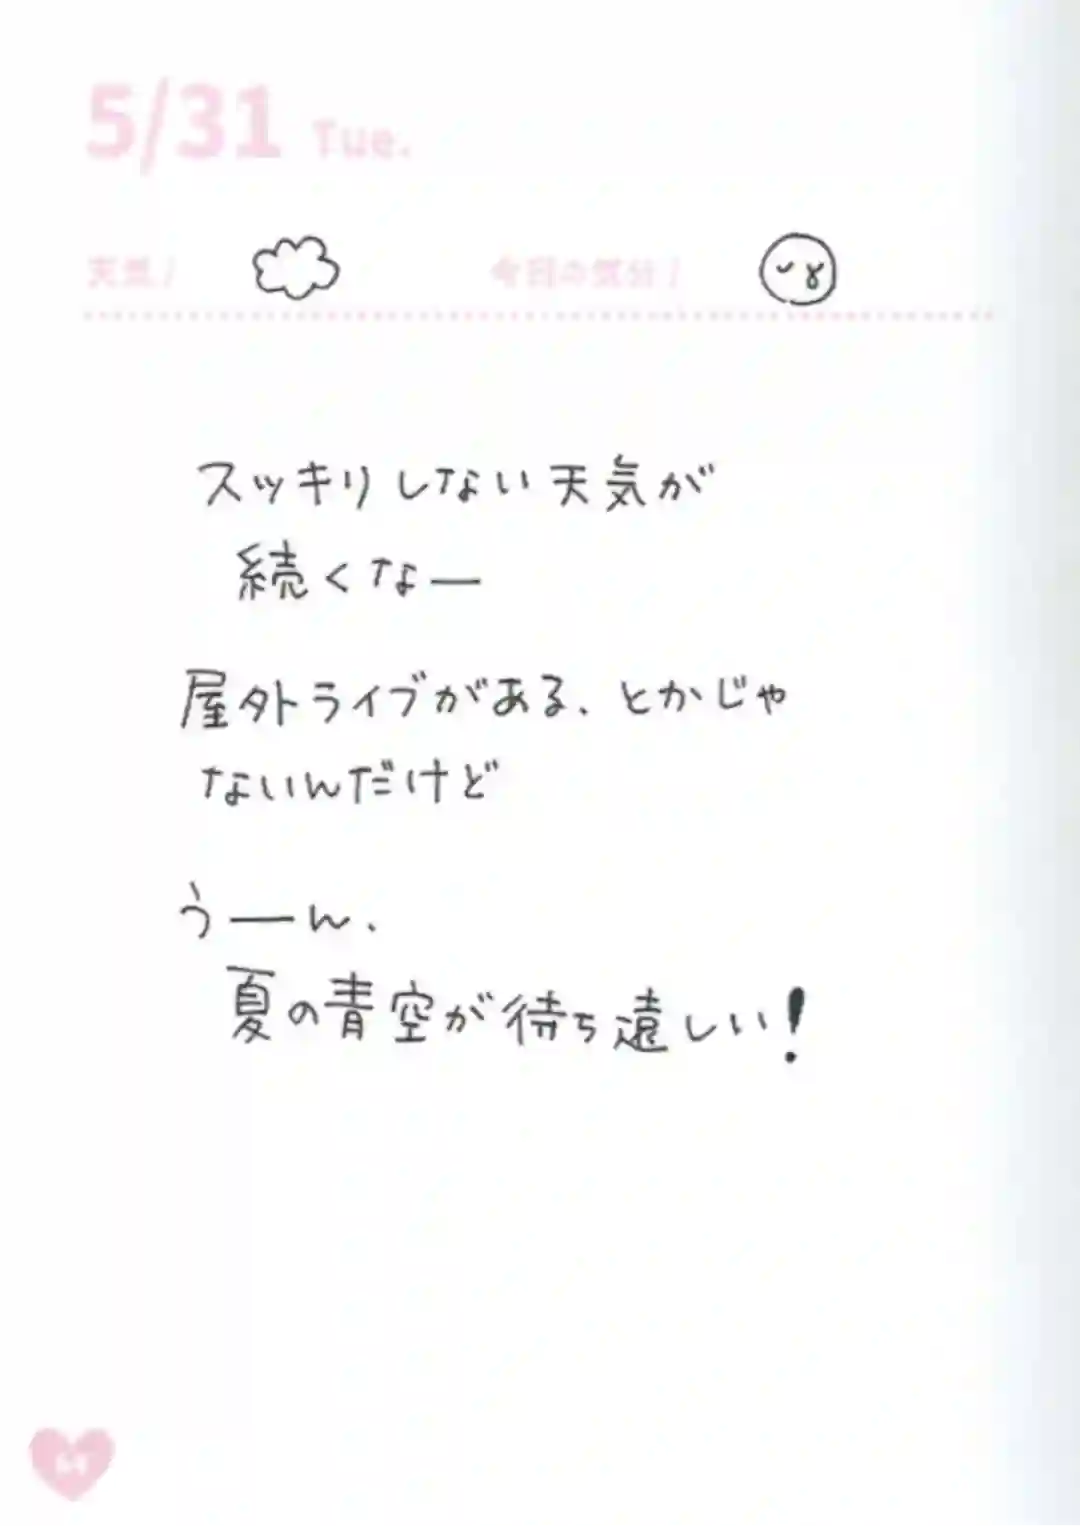 5/31 Tue.
天気/ 今日の気分/
スッキリしない天気が
続くなー
屋外ライブがある、とかじゃ
ないんだけど
うーん、
夏の青空が待ち遠しい!
64